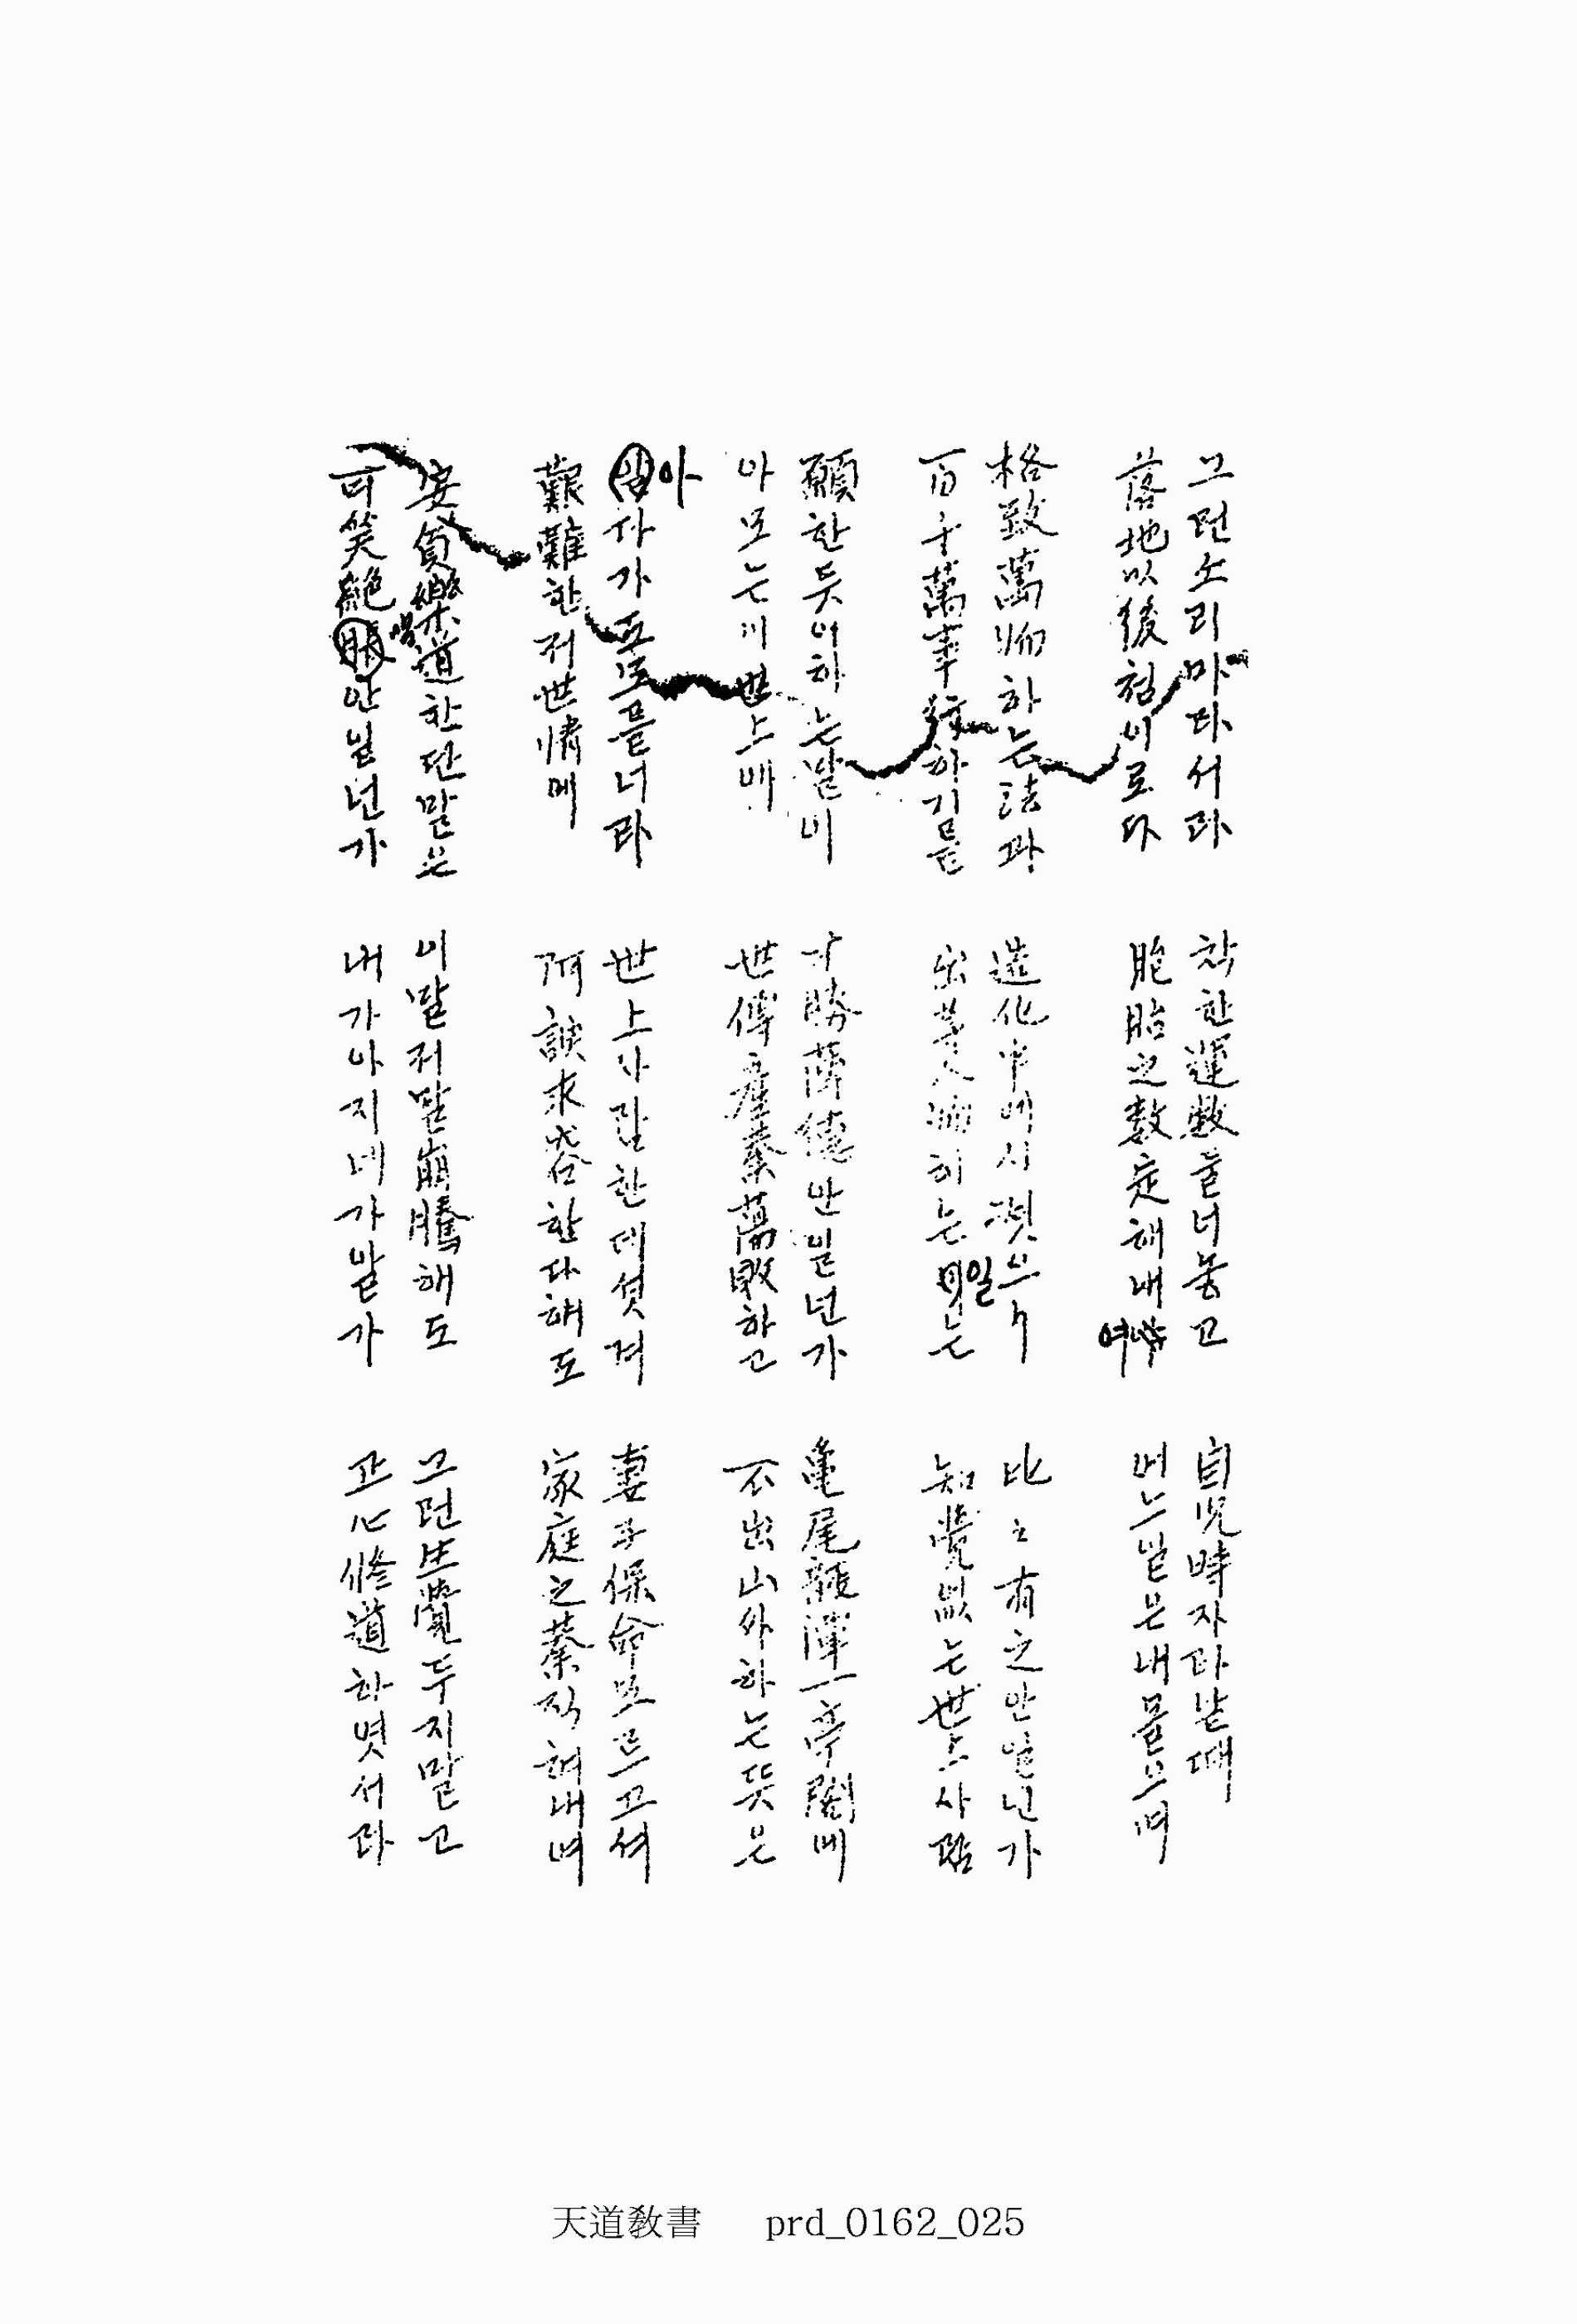 그런소리마라서라
落地以後첨이로다
착한運數둘너놓고
胞胎之數定해내여
自児時자라날때
어느일은내몰으며
格致萬物하는法과
百千萬事行하기를
造化中에시켯으니
出等人物하는일는
比比有之안일넌가
知覺없는世上사람
願한듯이하는말이
아모는이世上에
才勝薄德안일넌가
世傳産業蕩敗하고
亀尾龍潭一亭閣에
不出山外하는뜻은
아다가도모를너라
艱難한저世情에
世上사람한데섯겨
阿諛求容한다해도
妻子保命모르고셔
家庭之業직혀내며
安貧樂道한단말은
可笑絶唱안일넌가
이말저말崩騰해도
내가아지네가알가
그런生覺두지말고
心修道하엿서라
天道敎書 prd_0162_025